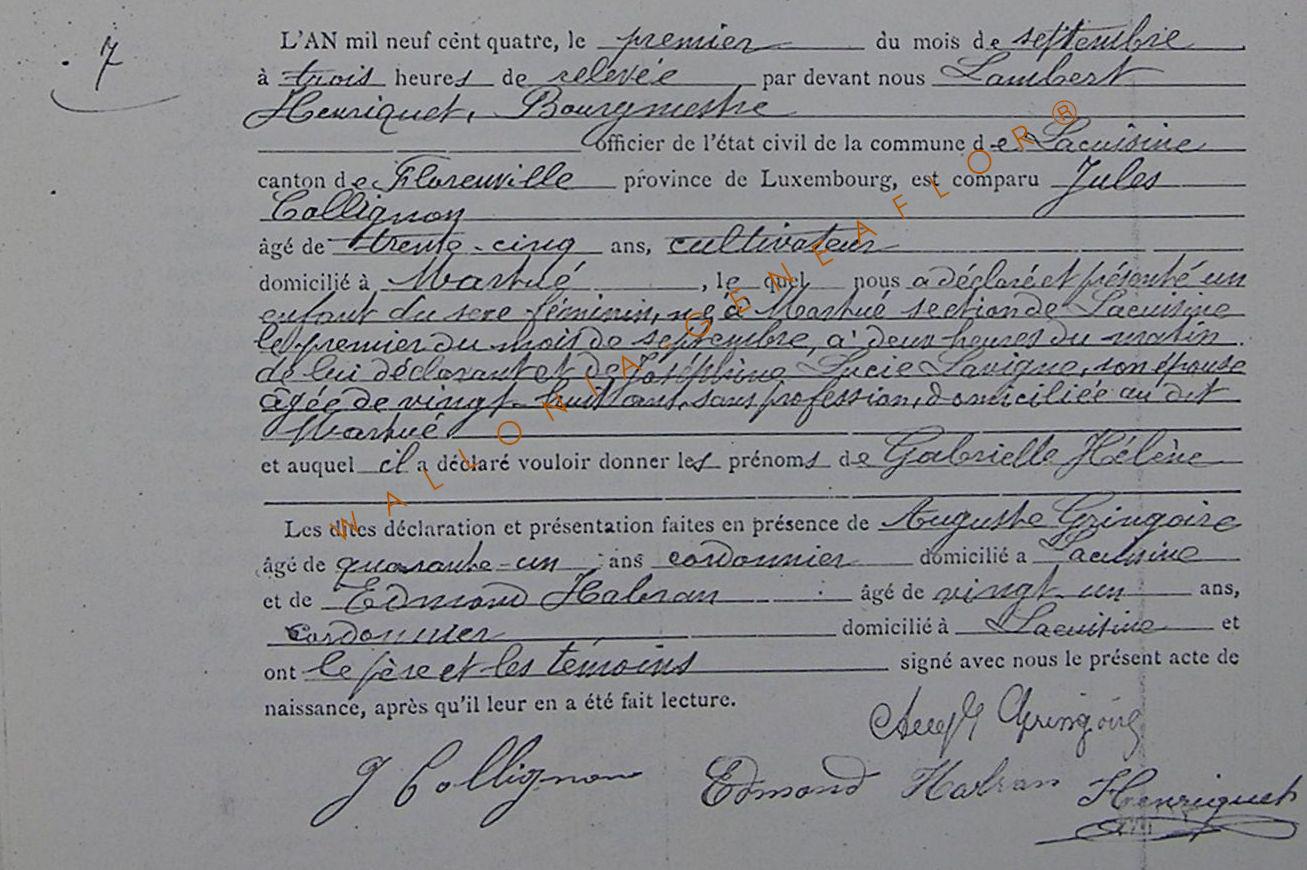 7
L'AN mil neuf cent quatre, le premier du mois de septembre
à trois heures de relevée par devant nous Lambert
Henriquet, Bourgmestre
officier de l'état civil de la commune de Lacuisine
canton de Florenville province de Luxembourg, est comparu Jules
Collignon
âgé de trente-cinq ans, cultivateur
domicilié à Martué, lequel nous a déclaré et présenté un
enfant du sexe féminin, né à Martué section de Lacuisine
le premier du mois de septembre, à deux heures du matin
de lui déclarant et de Joséphine Lucie Lavigne, son épouse
âgée de vingt-huit ans, sans profession, domiciliée au dit
Martué
et auquel il a déclaré vouloir donner les prénoms de Gabrielle Hélène
Les dites déclaration et présentation faites en présence de Auguste Gringoire
âgé de quarante-un ans cordonnier domicilié a Lacuisine
et de Edmond Habran âgé de vingt un ans,
cordonnier domicilié à Lacuisine et
ont le père et les témoins signé avec nous le présent acte de
naissance, après qu'il leur en a été fait lecture.
Aug Gringoire
J Collignon Edmond Habran Henriquet
WALLONIA-GENEAFLOR®